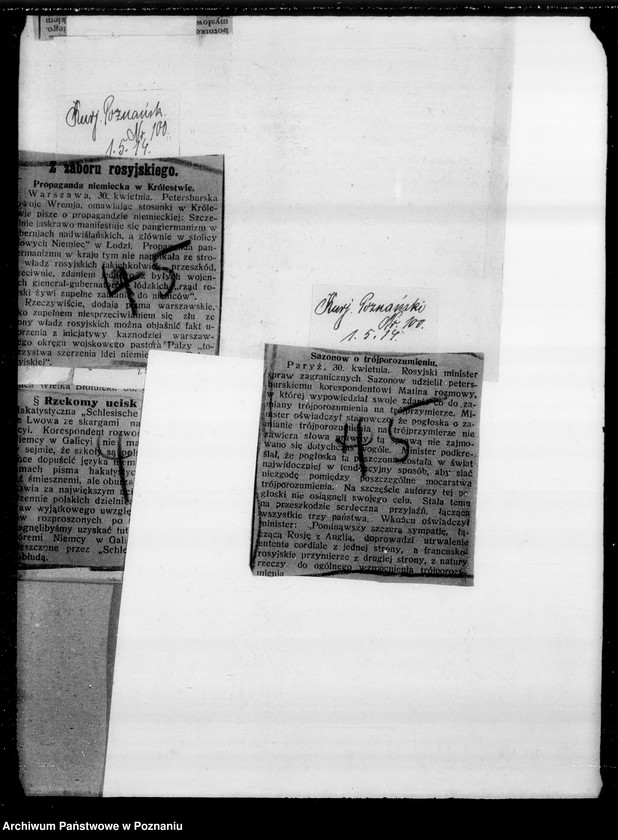 Kurj. Poznańsk.
Nr. 100.
1. 5. 14.
Z zaboru rosyjskiego.
Propaganda niemiecka w Królestwie.
Warszawa, 30. kwietnia. Petersburska
woje Wremja, omawiając stosunki w Króle-
wie pisze o propagandzie niemieckiej: Szcze-
nie jaskrawo manifestuje się pangiermanizm w
berniach nadwiślańskich, a głównie w stolicy
owych Niemiec" w Łodzi. Propaganda pan-
ermanizmu w kraju tym nie napotkała ze stro-
władz rosyjskich jakichkolwiek przeszkód,
zeciwnie, zdaniem z byłych wojen-
ch gienerał-gubernatorów łódzkich, rząd ro-
ski żywi zupełne zaufanie do niemców".
Rzeczywiście, dodają pisma warszawskie,
ko zupełnem nieprzeciwieniem się złu ze
ony władz rosyjskich można objaśnić fakt u-
orzenia z inicjatywy kaznodziei warszaw-
ego okręgu wojskowego pastora Palzy „to-
rzystwa szerzenia idei niemie
syjskiej".
§ Rzekomy ucisk
akatystyczna „Schlesische
e Lwowa ze skargami na
cyi. Korespondent rozwo
iemcy w Galicyi nie ma
sejmie, że szkoły pol
hce dopuścić języka niem
amach pisma hakatys
ż śmieszneml, ale oburza
awia za największym
zennie polskiej dzielnic
aw wyjątkowego uwzglę
w rozproszonych po
agnęlibyśmy uzyskać tut
óremi Niemcy w Gali
ieszczone przez „Schle
błudą.
Kurj. Poznański
Nr. 100.
1. 5. 14.
Sazonow o trójporozumieniu.
Paryż, 30. kwietnia. Rosyjski minister
spraw zagranicznych Sazonow udzielił peters-
burskiemu korespondentowi Matina rozmowy,
w której wypowiedział swoje zdanie co do za-
miany trójporozumienia na trójprzymierze. Mi-
nister oświadczył stanowczo, że pogłoska o za-
mianie trójporozumienia na trójprzymierze nie
zawiera słowa prawdy. Sprawą nie zajmo-
wano się dotychczas wogóle. Minister podkre-
ślał, że pogłoska ta puszczona została w świat
najwidoczniej w tendencyjny sposób, aby siać
niezgodę pomiędzy poszczególne mocarstwa
trójporozumienia. Na szczęście autorzy tej po-
głoski nie osiągnęli swojego celu. Stała temu
na przeszkodzie serdeczna przyjaźń, łącząca
wszystkie trzy państwa. Wkońcu oświadczył
minister: „Pominąwszy szczerą sympatię, łą-
czącą Rosję z Anglią, doprowadzi utrwalenie
ententa cordiale z jednej strony, a francusko-
rosyjskie przymierze z drugiej strony, z natury
rzeczy do ogólnego wzmocnienia trójporozu-
mienia
45
4
45
Archiwum Państwowe w Poznaniu